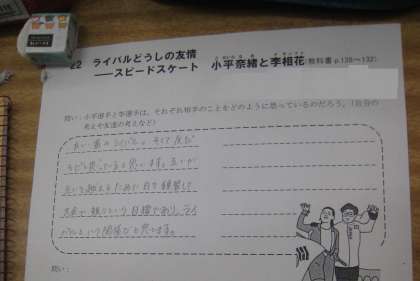 22 ライバルどうしの友情
――スピードスケート 小平奈緒と李相花(教科書 p.128～132)
問い：小平選手と李選手は、それぞれ相手のことをどのように思っているのだろう。（自分の
考えや友達の考えなど）
良い意味のライバル、そして友だ
ちだと思っていると思います。互いが
互いを越えるために日々練習して
という目標があり、ライ
バルという関係だと思います。
問い：